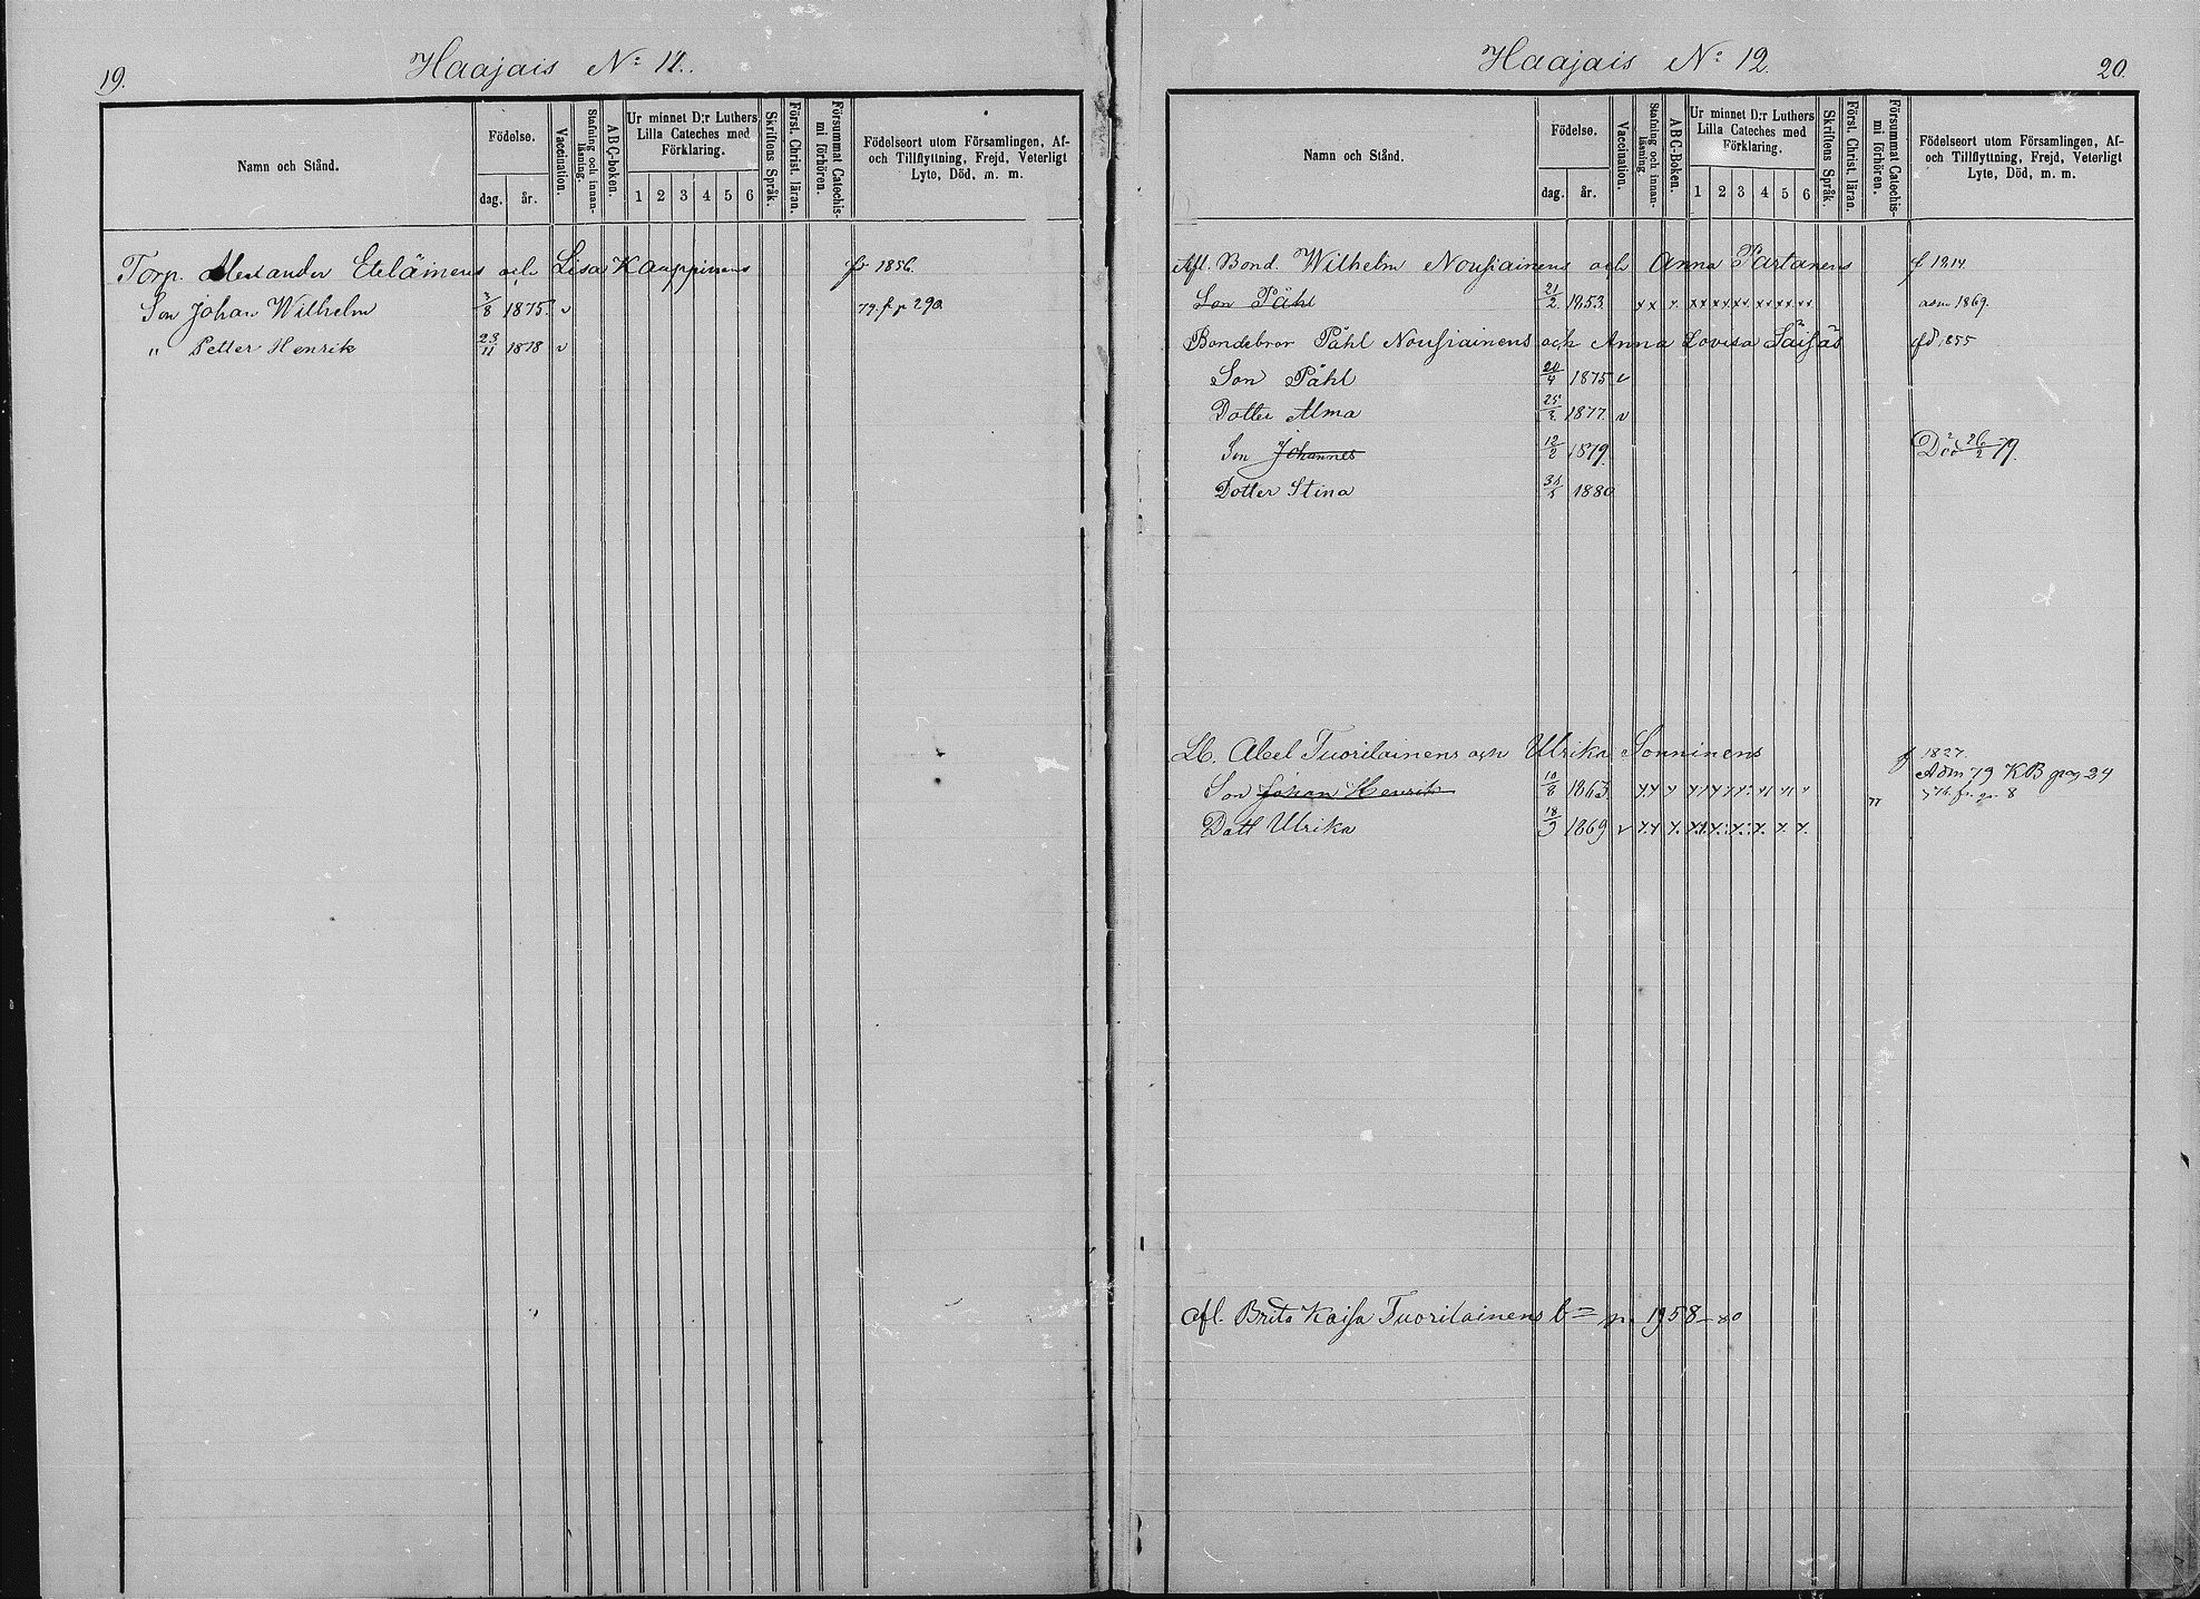 19.
Haajais No 11.
Namn och Stånd.
Födelse.
dag.
år.
Vaccination.
Stafning och innanläsning.
ABC-boken.
Ur minnet D:r Luthers Lilla Cateches med Förklaring.
1 2 3 4 5 6
Skriftens Språk.
Först. Christ. läran.
Försummat Catechismi förhören.
Födelseort utom Församlingen, Af- och Tillflyttning, Frejd, Veterligt Lyte, Död, m. m.
Torp. Alexander Eteläinens och Lisa Kauppinens 1856.
Son Johan Wilhelm 3/8 1875. v 79. fr p 290.
" Petter Henrik 23/11 1878 v
Haajais No 12.
20.
Namn och Stånd.
Födelse.
dag.
år.
Vaccination.
Stafning och innanläsning
ABC-Boken.
Ur minnet D:r Luthers Lilla Cateches med Förklaring.
1 2 3 4 5 6
Skriftens Språk.
Först. Christ. läran.
Försummat Catechismi förhören.
Födelseort utom Församlingen, Af- och Tillflyttning, Frejd, Veterligt Lyte, Död, m. m.
Afl. Bond. Wilhelm Nousiainens och Anna Partanens f 1814.
Son Påhl 21/2 1853. x x x. xx xx xx xx xx xx adm 1869.
Bondebror Påhl Nousiainens och Anna Lovisa Säisäs fd 1855
Son Påhl 20/4 1875 v
Dotter Alma 25/3 1877. v
Son Johannes 12/2 1879. Död 26/2 79.
Dotter Stina 1880
Abel Tuorilainens och Ulrika Sonninens f 1827.
Son Johan Henrik 10/8 1863. Adm 79 KB pag 24
Dott Ulrika 18/9 1869 v
Afl. Brita Kaisa Tuorilainens b= p. 1958-80